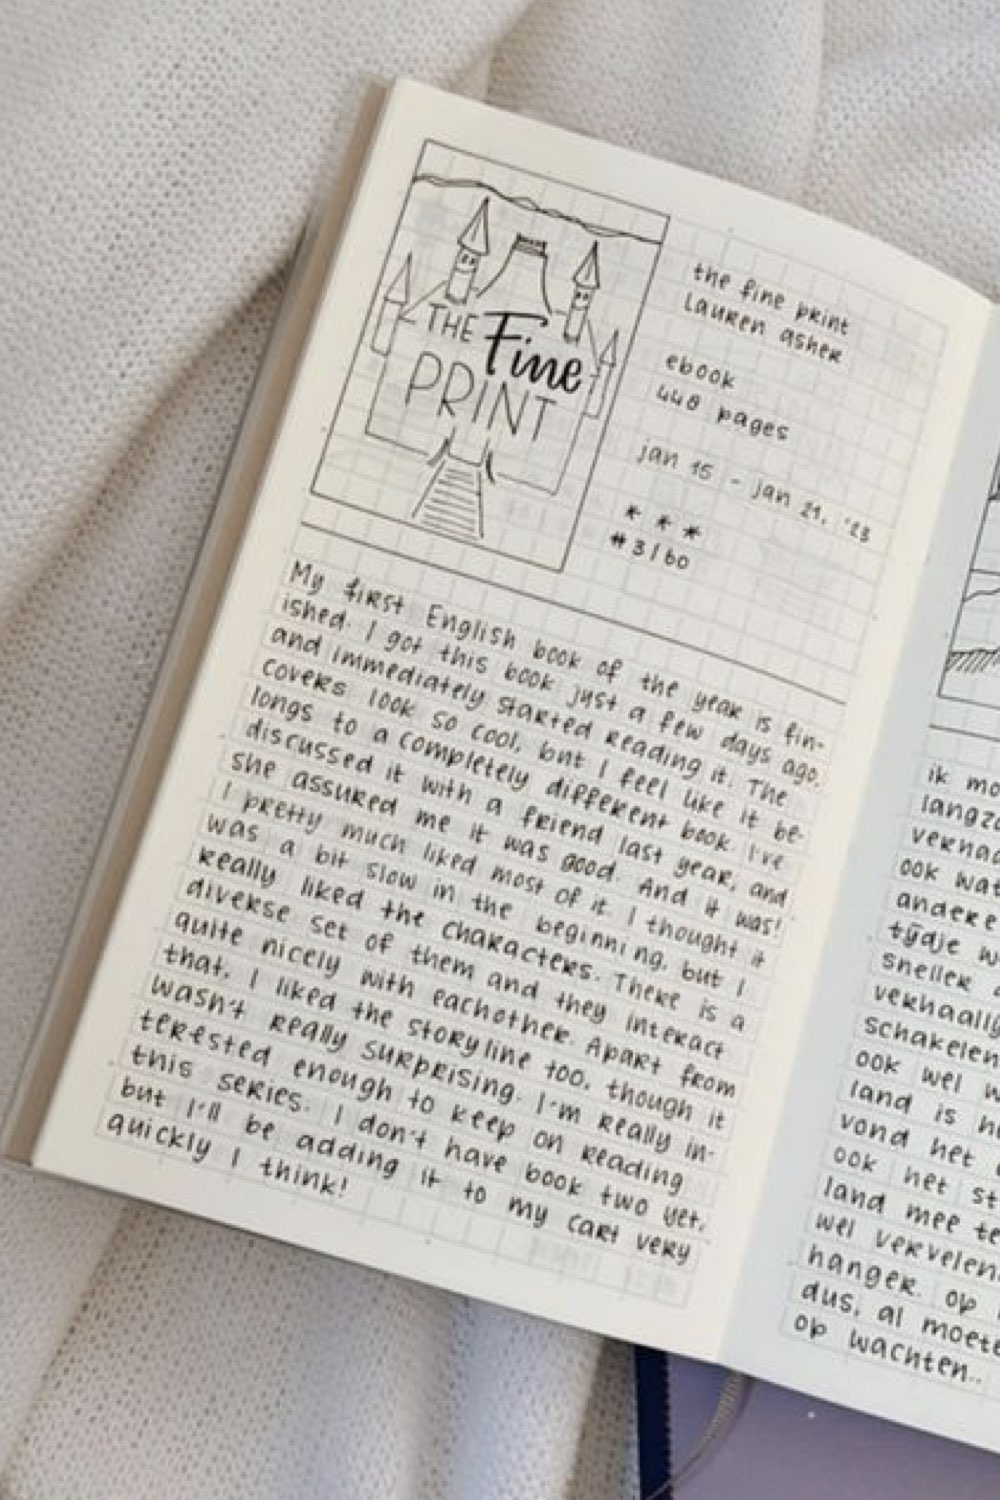 THE Fine
PRINT
the fine print
Lauren asher
ebook
448 pages
jan 15 - jan 21, '23
* * *
#3/60
My first English book of the year is fin-
ished. I got this book just a few days ago,
and immediately started reading it. The
covers look so cool, but I feel like it be-
longs to a completely different book. I've
discussed it with a friend last year, and
she assured me it was good. And it was!
I pretty much liked most of it. I thought it
was a bit slow in the beginning, but I
really liked the characters. There is a
diverse set of them and they interact
quite nicely with eachother. Apart from
that, I liked the storyline too, though it
wasn't really surprising. I'm really in-
terested enough to keep on reading
this series. I don't have book two yet,
but I'll be adding it to my cart very
quickly I think!
ik
vernaa
ook wat
andere
tijdje
sneller
verhaally
schakelen
ook wel
land is
vond het
ook het
land mee
wel vervelen
hanger. op
dus, al moete
op wachten..